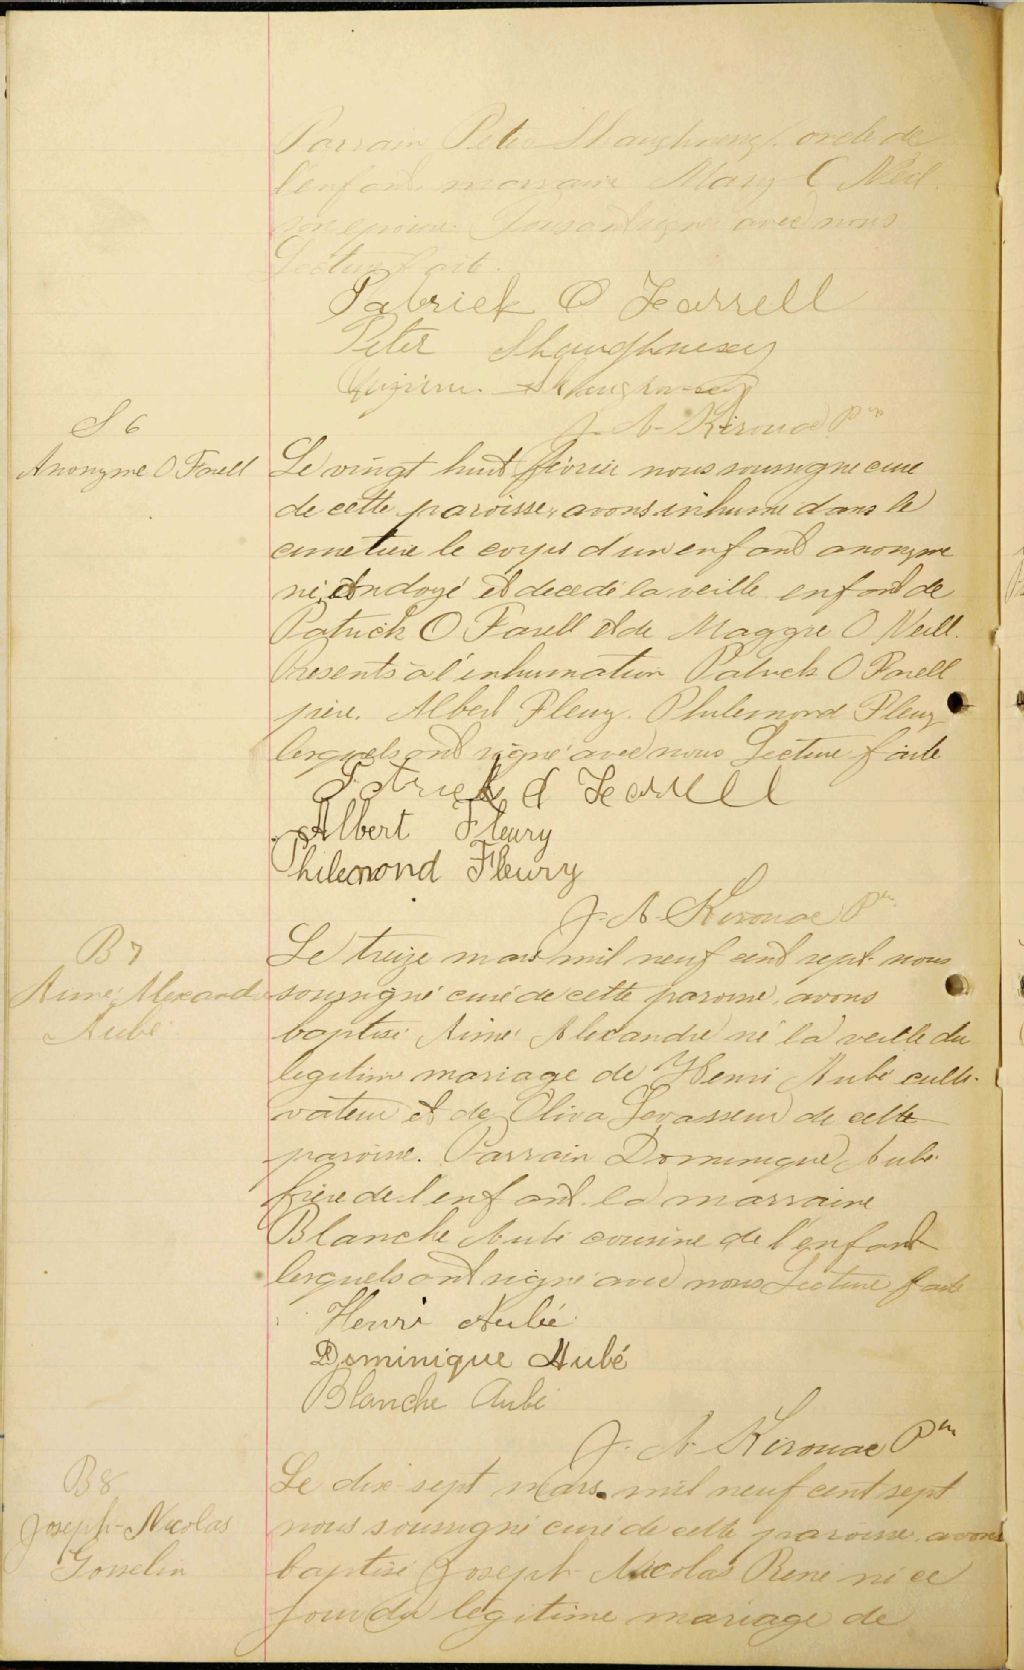 Parrain Peter Shaughnessy oncle de
l'enfant marraine Mary O Neil
son epouse. avec nous
Lecture faite.
Patrick O Farrell
Peter Shaughnessy
Shaughnessy
J. A. Kirouac Ptre
S 6
Anonyme O Farell
Le vingt huit février nous soussigne cure
de cette paroisse, avons inhumé dans le
cimetière le corps d'un enfant anonyme
né, ondoyé et decedé la veille enfant de
Patrick O Farell et de Maggie O Neill.
Présents à l'inhumation Patrick O Farell
père. Albert Fleury. Philemond Fleury
lesquels ont signé avec nous Lecture faite
Patrick O Farrell
Albert Fleury
Philemond Fleury
J. A. Kirouac Ptre
B 7
Aimé Alexandre
Aubé
Le treize mars mil neuf cent sept nous
soussigné curé de cette paroisse, avons
baptisé Aimé Alexandre né la veille du
legitime mariage de Henri Aubé culti-
vateur et de Oliva Levasseur de cette
paroisse. Parrain Dominique Aubé
frère de l'enfant la marraine
Blanche Aubé cousine de l'enfant
lesquels ont signé avec nous Lecture faite
Henri Aubé
Dominique Aubé
Blanche Aubé
J. A. Kirouac Ptre
B 8
Joseph-Nicolas
Gosselin
Le dix-sept mars mil neuf cent sept
nous soussigné curé de cette paroisse avons
baptisé Joseph-Nicolas René né ce
jour du légitime mariage de